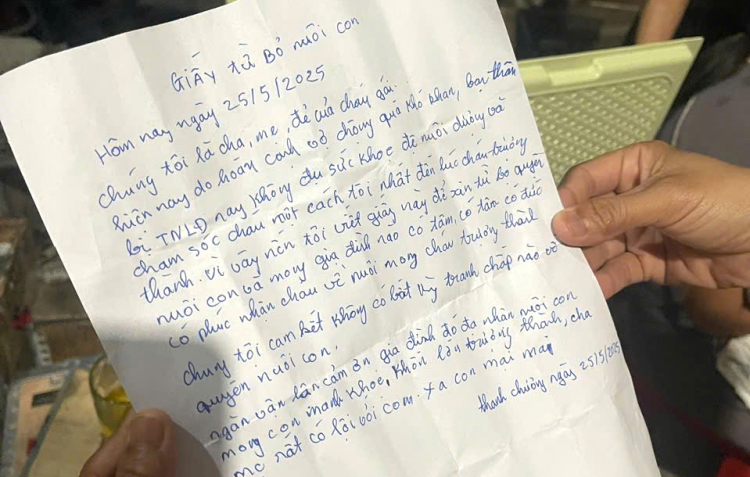 GIẤY từ Bỏ nuôi con
Hôm nay ngày 25/5/2025
chúng tôi là cha, mẹ, đẻ của cháu gái.
hiện nay do hoàn cảnh vợ chồng quá khó khăn, bản thân
bị TNLĐ nay không đủ sức khỏe để nuôi dưỡng và
chăm sóc cháu một cách tối nhất đến lúc cháu trưởng
thành. vì vậy nên tôi viết giấy này để xin từ bỏ quyền
nuôi con và mong gia đình nào có tâm, có tầm có đức
có phúc nhận cháu về nuôi mong cháu trưởng thành
chúng tôi cam kết không có bất kỳ tranh chấp nào về
quyền nuôi con.
ngàn vạn lần cảm ơn gia đình đó đã nhận nuôi con
mong con mạnh khỏe, khôn lớn trưởng thành, cha
mẹ rất có lỗi với con. xa con mãi mãi
thanh chương ngày 25/5/2025